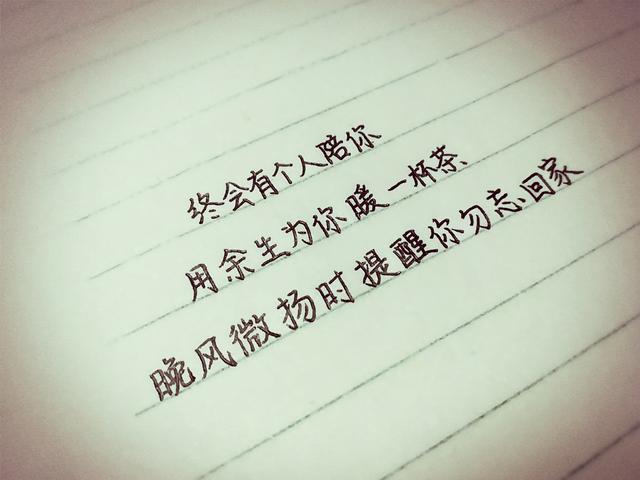 终会有个人陪你
用余生为你暖一杯茶
晚风微扬时提醒你勿忘回家